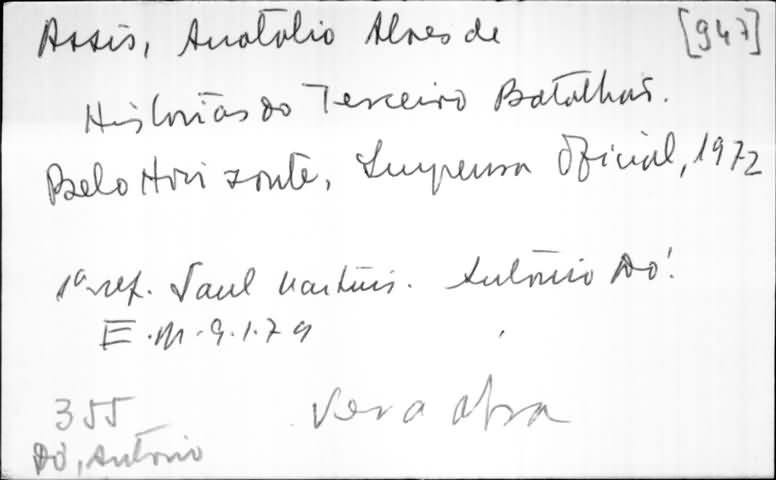 Assis, Anatólio Alves de [947]
Histórias do Terceiro Batalhão.
Belo Horizonte, Imprensa Oficial, 1972
1ª ref. Saul Martins. Antônio Dó!
E.M. 9.1.79
355 Ver a obra
Dó, Antônio